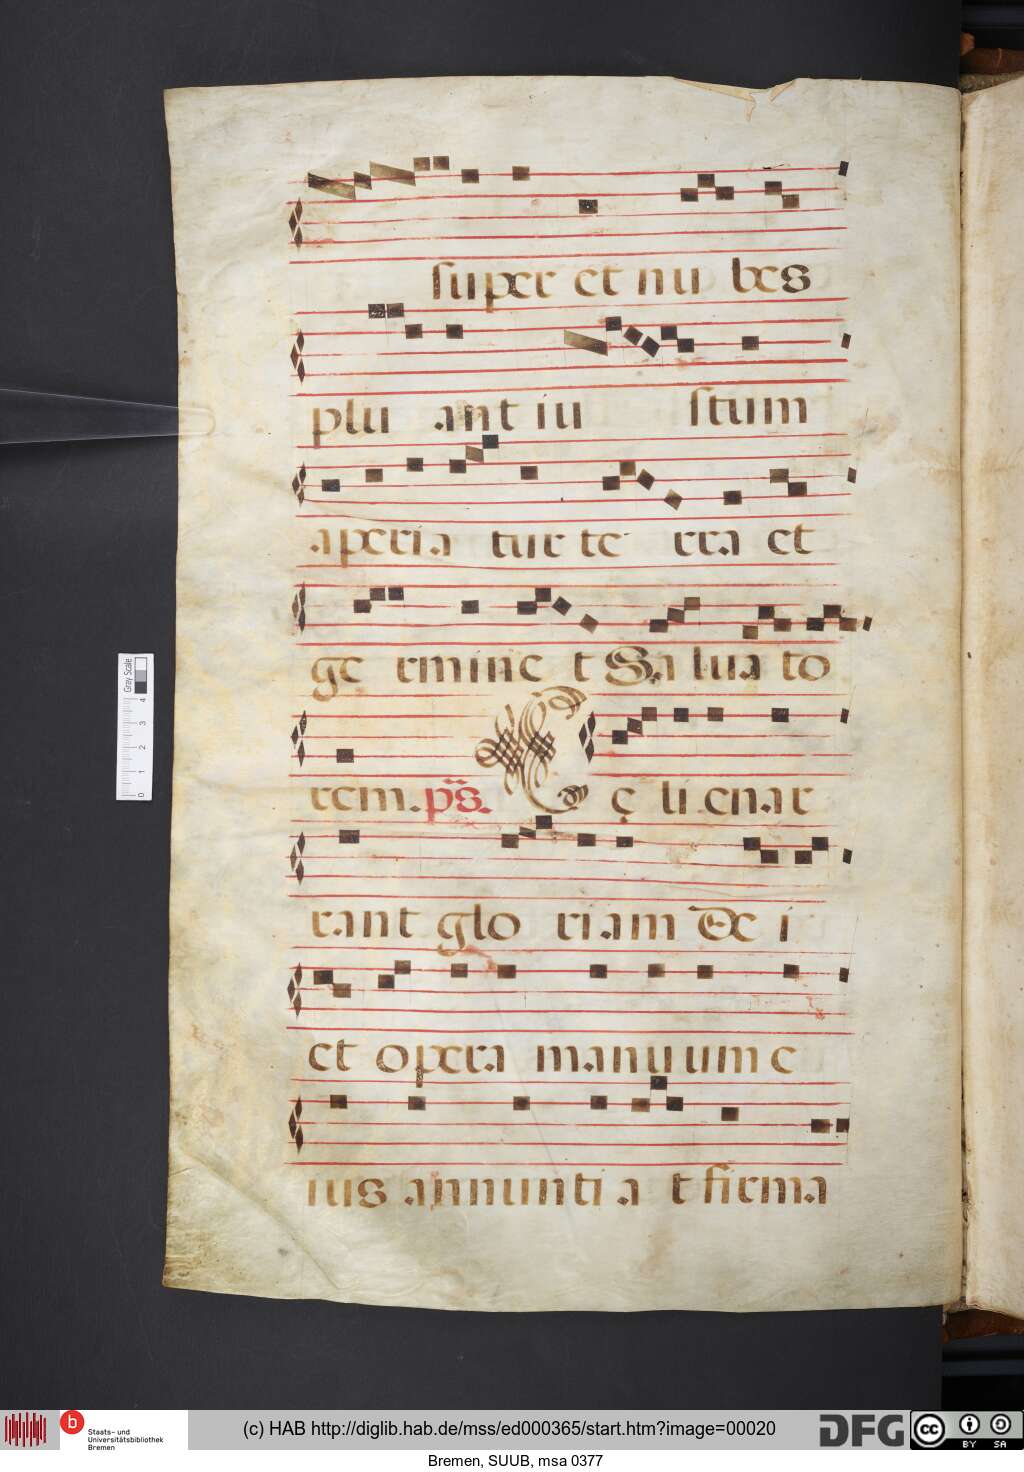 super et nu bes
plu ant iu stum
aperia tur te rra et
ge rmine t Salua to
rem. ps. C ę li enar
rant glo riam De i
et opera manuum e
ius annunti a t firma
Gray Scale
4
3
2
1
0
b
Staats- und
Universitätsbibliothek
Bremen
(c) HAB http://diglib.hab.de/mss/ed000365/start.htm?image=00020
DFG
cc BY SA
Bremen, SUUB, msa 0377